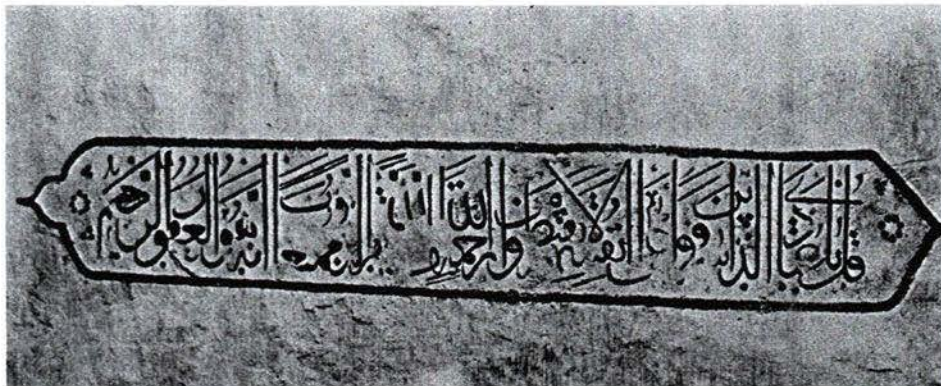 قل يا عبادي الذين اسرفوا على انفسهم لا تقنطوا من رحمة الله ان الله يغفر الذنوب جميعا انه هو الغفور الرحيم